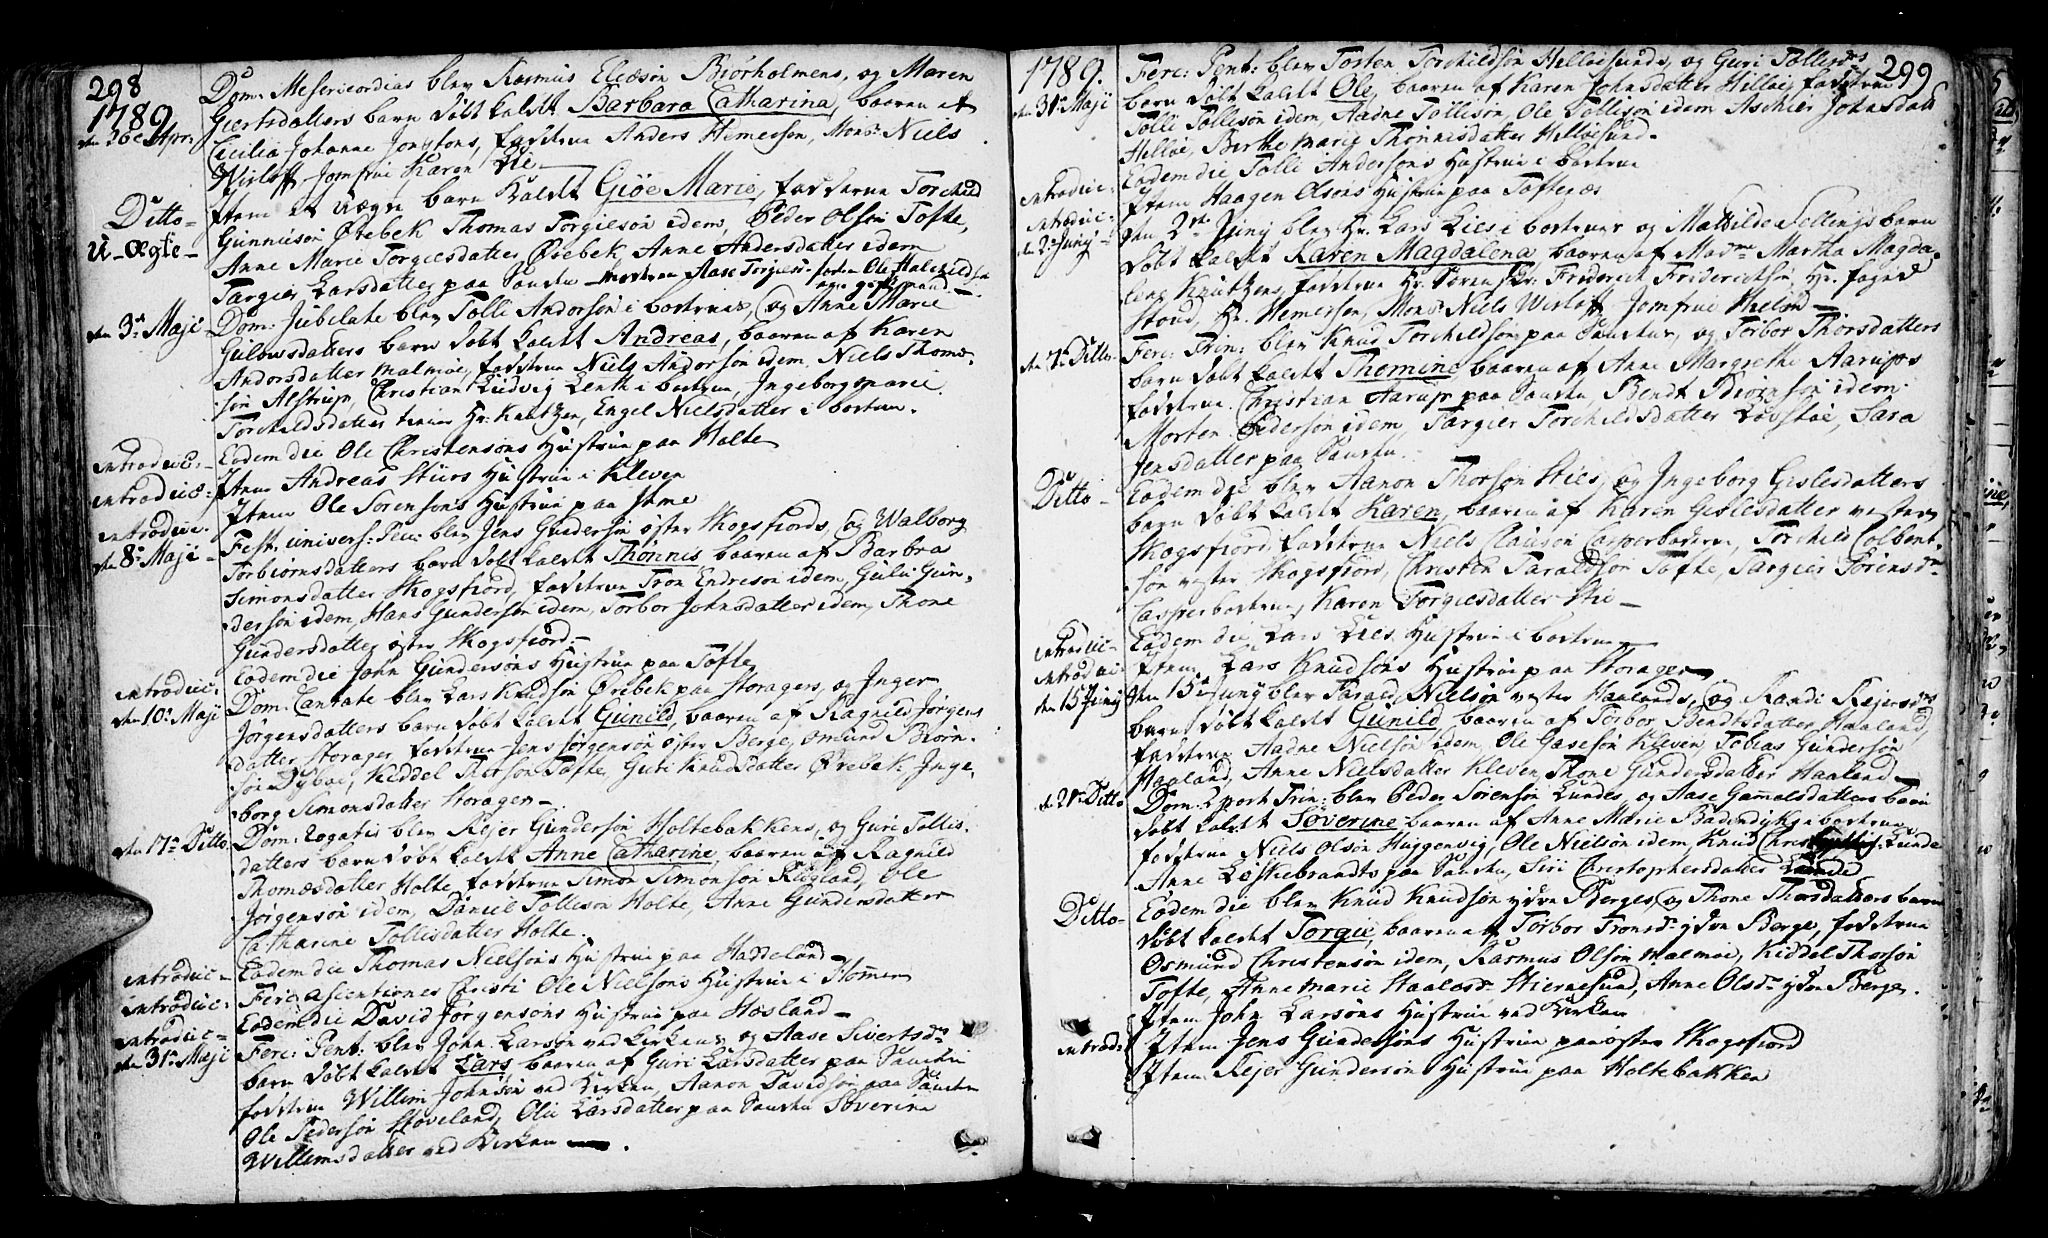 298
1789
den 26de Apr:
Dom: Misericordias blev Rasmus Eliæsøn Biørholmens, og Maren
Giertsdatters barn døbt kaldt Barbara Catharina, baaren af
Cicilia Johanne Jonstons, fadderne Anders Hemersøn, Mons: Niels
Wisløff Jomfrue Karen Lie
Ditto
U-Ægte
Item et uægte barn kaldt Giøe Marie, fadderne Torchild
Gunnusøn Ørebek Thomas Torgiesøn idem, Peder Olsøn Tofte,
Anne Marie Torgiesdatter, Ørebek, Anne Andersdatter idem
Targier Larsdatter paa moderen Aase Torgies: faderen Ole Halvorsøn
den 3de Maji
Dom: Jubilate blev Tolli Andorsøn i bostrus, og Anne Marie
Gulowsdatters barn døbt kaldt Andreas, baaren af Karen
Andorsdatter Malmøe, fadderne Niels Andorsøn idem, Niels Thome-
søn Alstrup, Christian Ludvig Lenth i bostrue, Ingeborg Marie
Torchildsdatter tiener Hr: Knutzen, Engel Nielsdatter i bostrue.
introduc:
Eodem die Ole Christensøns Hustrue paa Holte
introduc:
Item Andreas Stiurs Hustrue i Kleven
introduc:
Item Ole Sørensøns Hustrue paa Ime
den 8de Maji
Fest: univers: Pen: blev Jens Gundersøn øster Skogsfiords, og Walborg
Torbiornsdatters barn døbt kaldt Thønnis baaren af Barbra
Simonsdatter Skogsfiord, fadderne Tron Endresøn idem, Guli Gun-
dersøn idem, Hans Gundersøn idem, Torbor Johnsdatter idem, Thone
Gundersdatter øster Skogsfiord.
introduc:
Eodem die John Gundersøns Hustrue paa Tofte
den 10de Maji
Dom: Cantate blev Lars Knudsøn Ørebek paa Storagers, og Inger
Jørgensdatters barn døbt kaldt Gunild, baaren af Ragnild Jørgens
datter Storager, fadderne Jens Jørgensøn øster Berge, Osmund Biørn-
søn Dybøe, Kiddel Thorsøn Tofte, Guri Knudsdatter Ørebek, Inge-
borg Simonsdatter Storager
den 17de Ditto
Dom: Rogatis blev Rejer Gundersøn Holtebakkens, og Guri Tollis-
datters barn døbt kaldt Anne Catharine, baaren af Ragnild
Thomæsdatter Holte, fadderne Simon Simonsøn Rugland, Ole
Jørgensøn idem, Daniel Tollisøn Holte, Anne Gundersdatter
Catharine Tollisdatter Holte.
introduc:
Eodem die Thomas Nielsøns Hustrue paa Haddeland
introduc:
Fer: Ascentiones Christi Ole Nielsøns Hustrue i Homen
introduc:
Eodem die David Jørgensøns Hustrue paa Høsland
den 31te Maji
Fer: Pent: blev John Larsøn ved Kirkens, og Aase Sivertsdr
barn døbt kaldt Lars baaren af Guri Larsdatter paa
fadderne Willem Johnsøn ved Kirken, Aanon Davidsøn paa
Ole Pedersøn Støveland, Olu Larsdatter paa Severine
Willemsdatter ved Kirken
299
1789.
den 31te Maji
Fer: Pent: blev Tosten Torchildsøn Helløesunds, og Guri Tollisdrs
barn døbt kaldt Ole, baaren af Karen Johnsdatter Helløe, fadderne
Tolli Tollisøn idem, Aadne Tollisøn, Ole Tollisøn idem Aschier Johnsdatt
Helløe, Birthe Marie Thønnisdatter Helløesund.
introduc:
Eodem die Tolli Andorsøns Hustrue i bostrue
introduc:
Item Haagen Olsøns Hustrue paa Toftenæs
d. 2de Junij
den 2den Junij blev Hr. Lars Lies i bostruer og Mathilde Sellings barn
døbt kaldt Karen Magdalena, baaren af Madme Martha Magda-
lene Knutzens, fadderne Hr Søren Friderich Friderichsøn, Hr. foged
Stoud, Hr. Hemersen, Mons: Niels Wisløff Jomfrue Nielsøn
den 7de Ditto
Fer: Trin: blev Knud Torchildsøn paa og Torbor Thorsdatters
barn døbt kaldt Thomine, baaren af Anne Margrethe Aarups
fadderne Christian Aarup paa Bendt idem.
Morten Pedersøn idem, Targier Torchildsdatter Løvstøe, Sara
Jensdatter paa
Ditto
Eodem die blev Aanon Thorsøn Sties, og Ingeborg Gislesdatters
barn døbt kaldt Karen, baaren af Karen Gislesdatter vester
Skogsfiord, fadderne Niels Clausøn Casperbostrue, Torchild Colbent-
søn vester Skogsfiord, Christen Taraldsøn Tofte, Targier Sørensdr
Casperbostrue, Karen Torgiesdatter Stie
introduc:
Eodem die Lars Lies Hustrue i bostrue
introduc:
Item Lars Knudsøns Hustrue paa Storager
den 15de Junij
den 15de Junij blev Tarald Nielsøn vester Haalands, og Randi Rejersdrs
barn døbt kaldt Gunild baaren af Torbor Bendtsdatter Haaland,
fadderne Aadne Nielsøn idem, Ole Gasesøn Kleven, Tobias Gundersøn
Haaland, Anne Nielsdatter Kleven, Thone Gundersdatter Haaland
d. 21de Ditto
Dom: 2 post Trin: blev Peder Sørensøn Lundes, og Aase Gammelsdatters barn
døbt kaldt Severine baaren af Anne Marie i bostrue
fadderne Niels Olsøn Huggenvig, Ole Nielsøn idem, Knud Lunde
Anne Løskebrandts paa Siri Christophersdatter Lunde
Ditto
Eodem die blev Knud Knudsøn ydre Berges, og Thone Thorsdatters barn
døbt kaldt Torgie, baaren af Torbor Tronsdr ydre Berge, fadderne
Osmund Christensøn idem, Rasmus Olsøn Malmøe, Kiddel Thorsøn
Tofte, Anne Marie Haalesdr Hiernesund, Anne Olsdr ydre Berge.
introd:
Item John Larsøns Hustrue ved Kirken
Item Jens Gundersøns Hustrue paa øster Skogsfiord
Item Rejer Gundersøn Hustrue paa Holtebakken